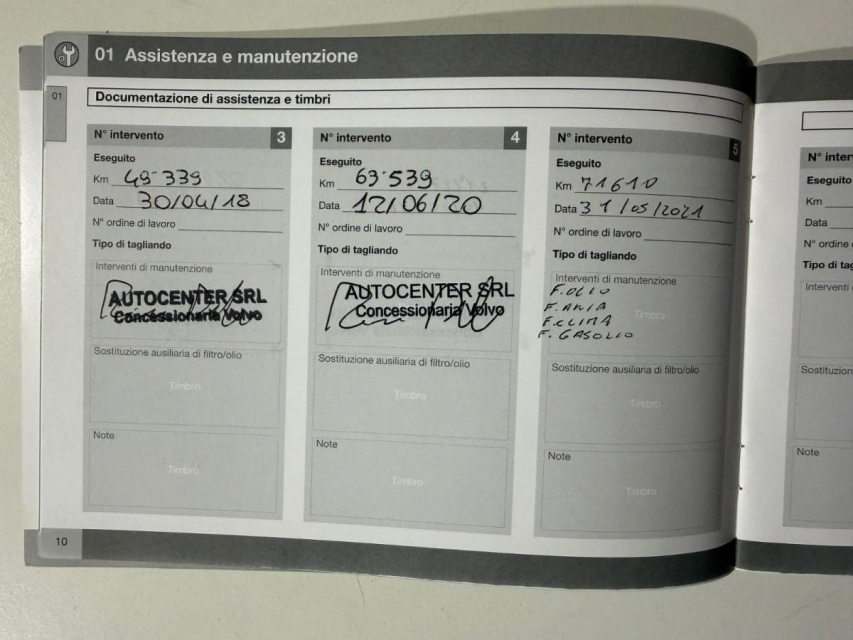 01 Assistenza e manutenzione
01
Documentazione di assistenza e timbri
N° intervento 3
Eseguito
Km 49·339
Data 30/04/18
N° ordine di lavoro
Tipo di tagliando
Interventi di manutenzione
AUTOCENTER SRL
Concessionaria Volvo
Sostituzione ausiliaria di filtro/olio
Timbro
Note
Timbro
N° intervento 4
Eseguito
Km 63·539
Data 12/06/20
N° ordine di lavoro
Tipo di tagliando
Interventi di manutenzione
AUTOCENTER SRL
Concessionaria Volvo
Sostituzione ausiliaria di filtro/olio
Timbro
Note
Timbro
N° intervento 5
Eseguito
Km 71610
Data 31/05/2021
N° ordine di lavoro
Tipo di tagliando
Interventi di manutenzione
F. OLIO
F. ARIA
F. CLIMA
F. GASOLIO
Timbro
Sostituzione ausiliaria di filtro/olio
Timbro
Note
Timbro
10
N° inter
Eseguito
Km
Data
N° ordine
Tipo di tag
Interventi
Sostituzion
Note